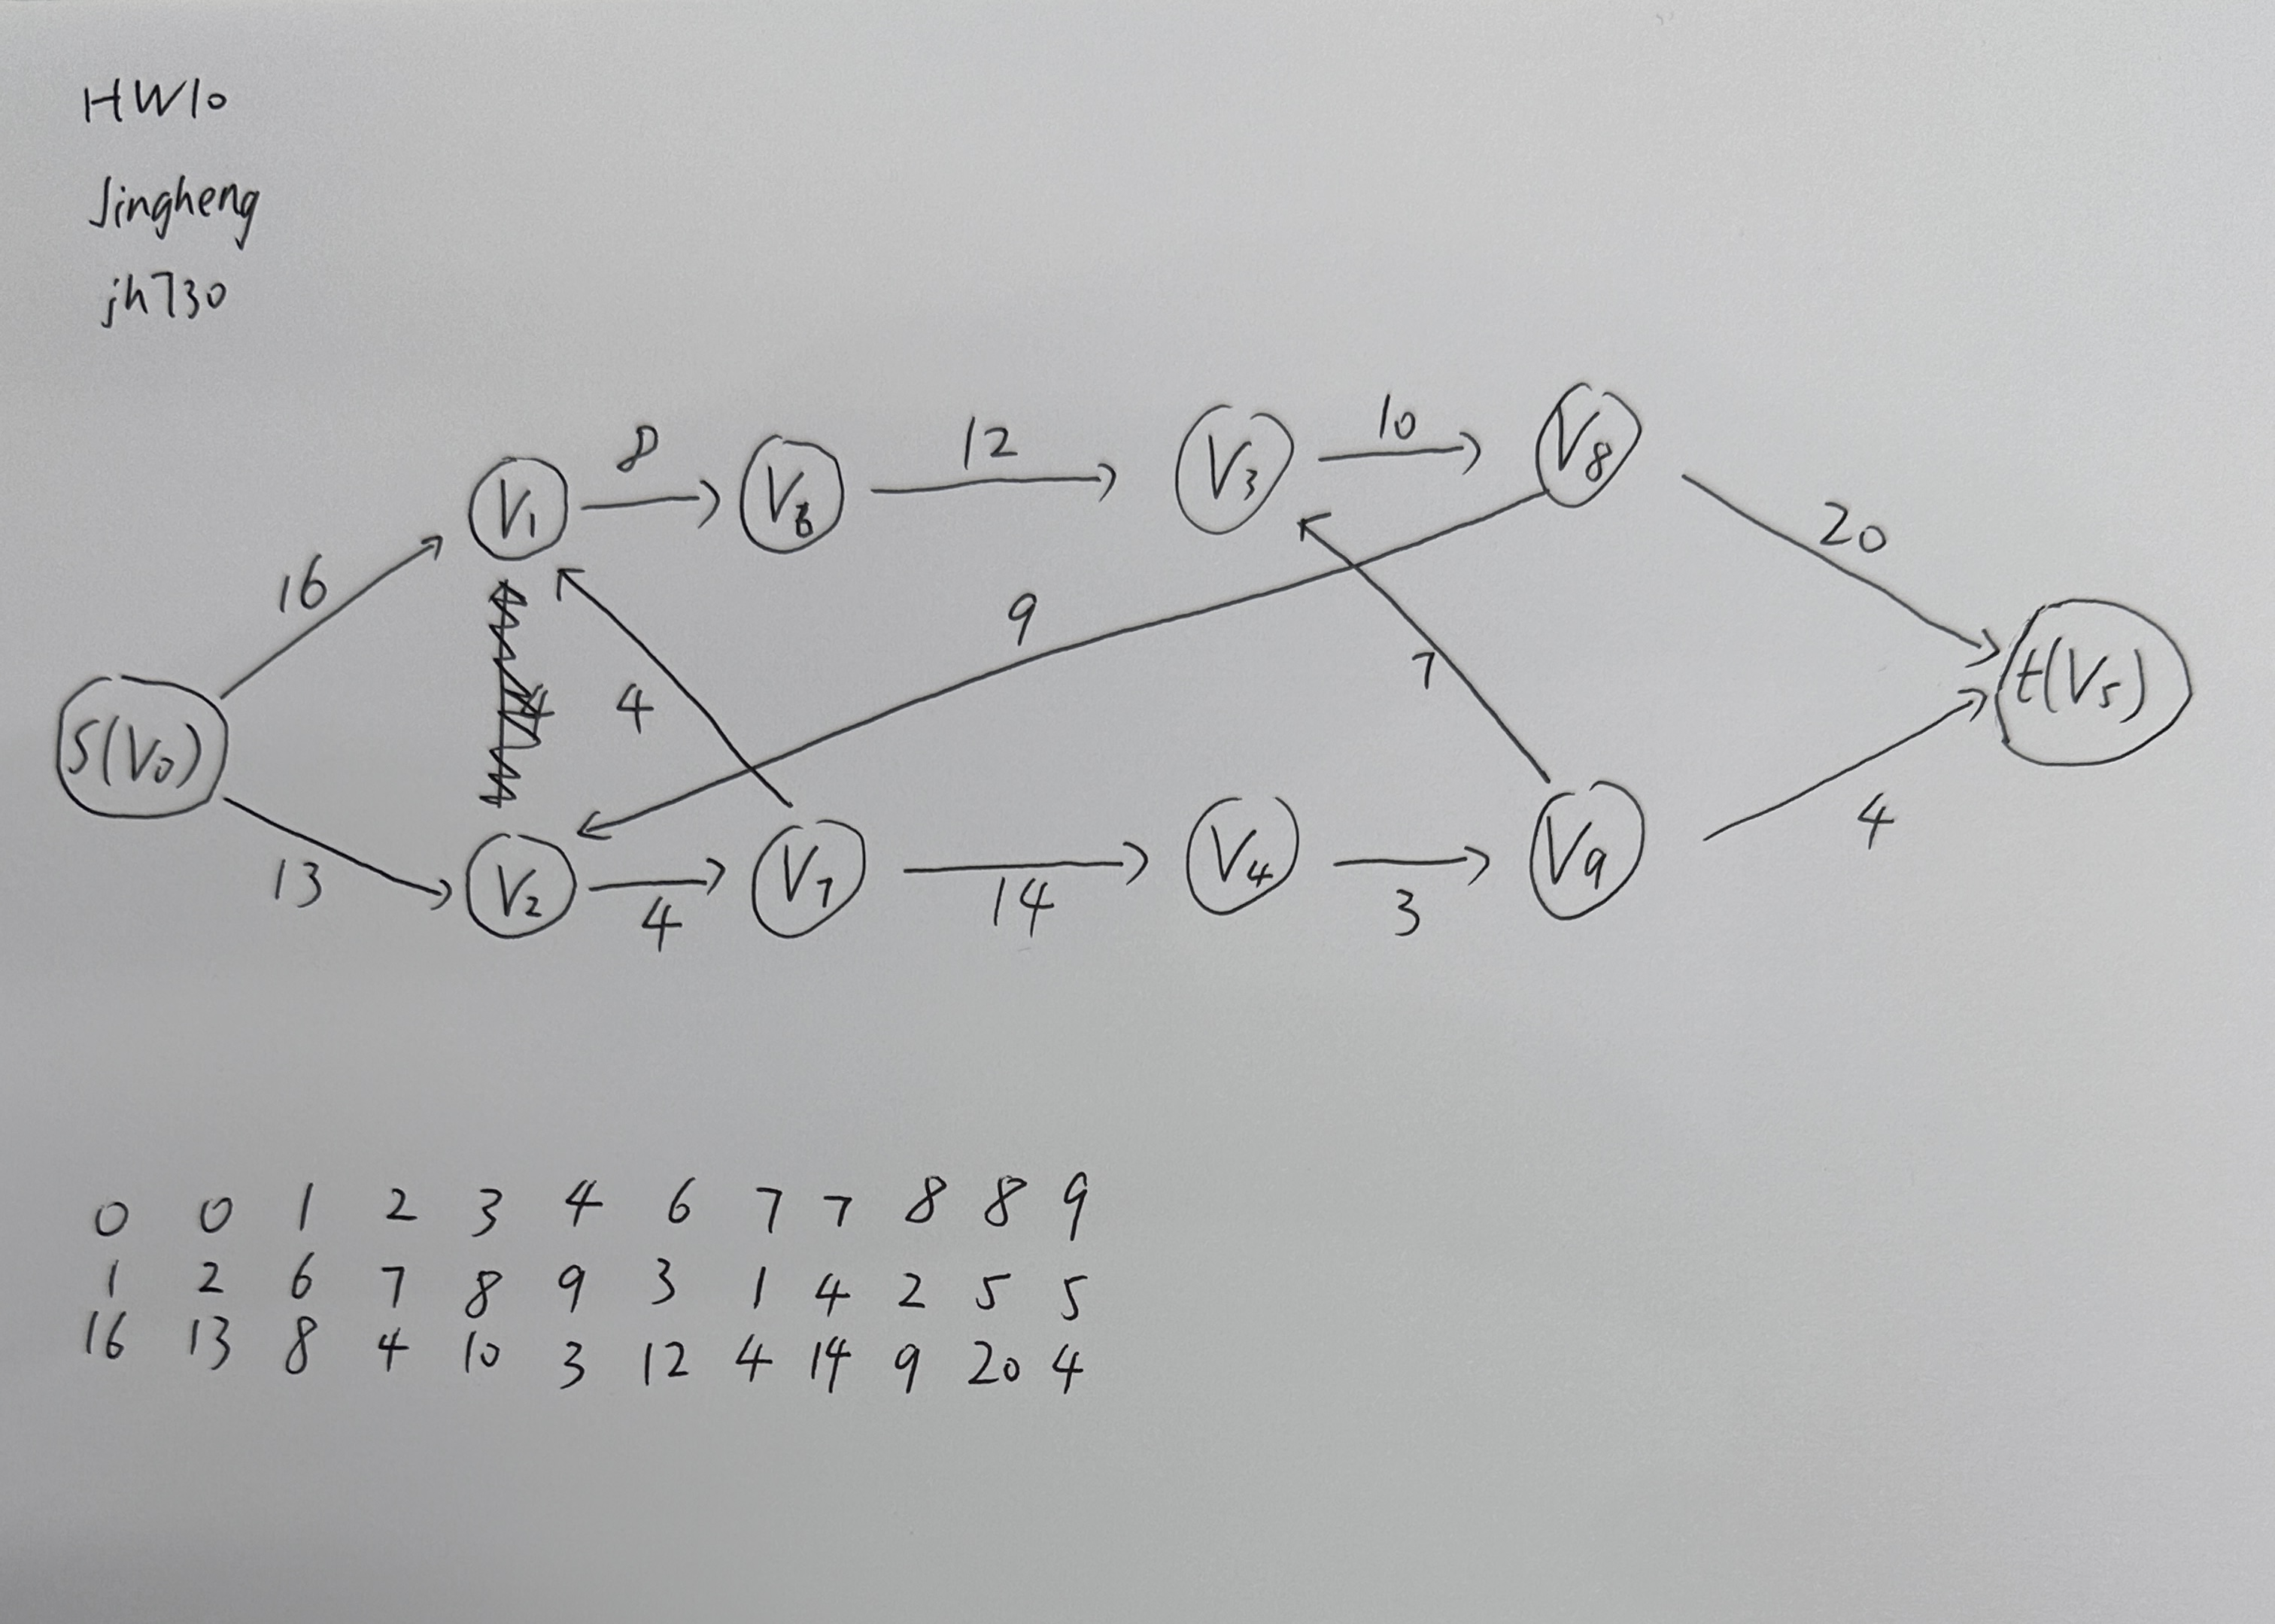 HW10
Jingheng
jh730
8 12 V3 10 V8
V1 V6
16 20
9
S(V0) 4 7 t(V5)
13 V2 4 V7 14 V4 3 V9 4
0 0 1 2 3 4 6 7 7 8 8 9
1 2 6 7 8 9 3 1 4 2 5 5
16 13 8 4 10 3 12 4 14 9 20 4